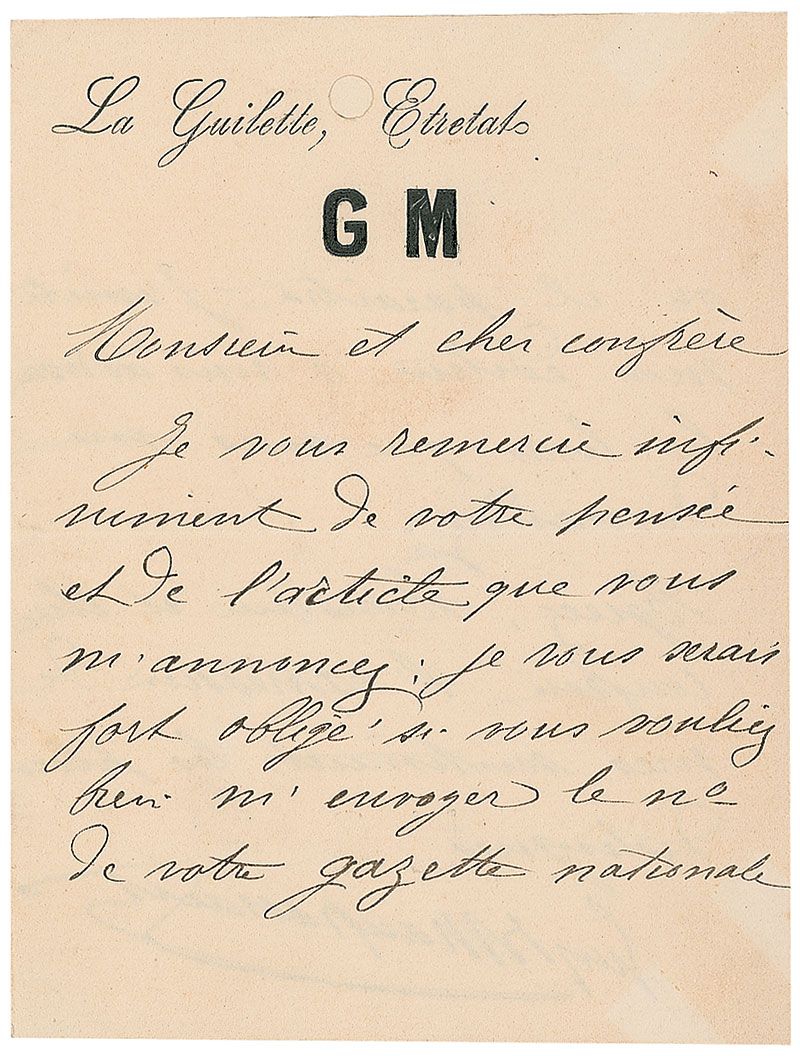 La Guilette, Etretat
G M
Monsieur et cher confrère
Je vous remercie infi-
niment de votre pensée
et de l'article que vous
m'annoncez ; je vous serais
fort obligé si vous vouliez
bien m'envoyer le no
de votre gazette nationale